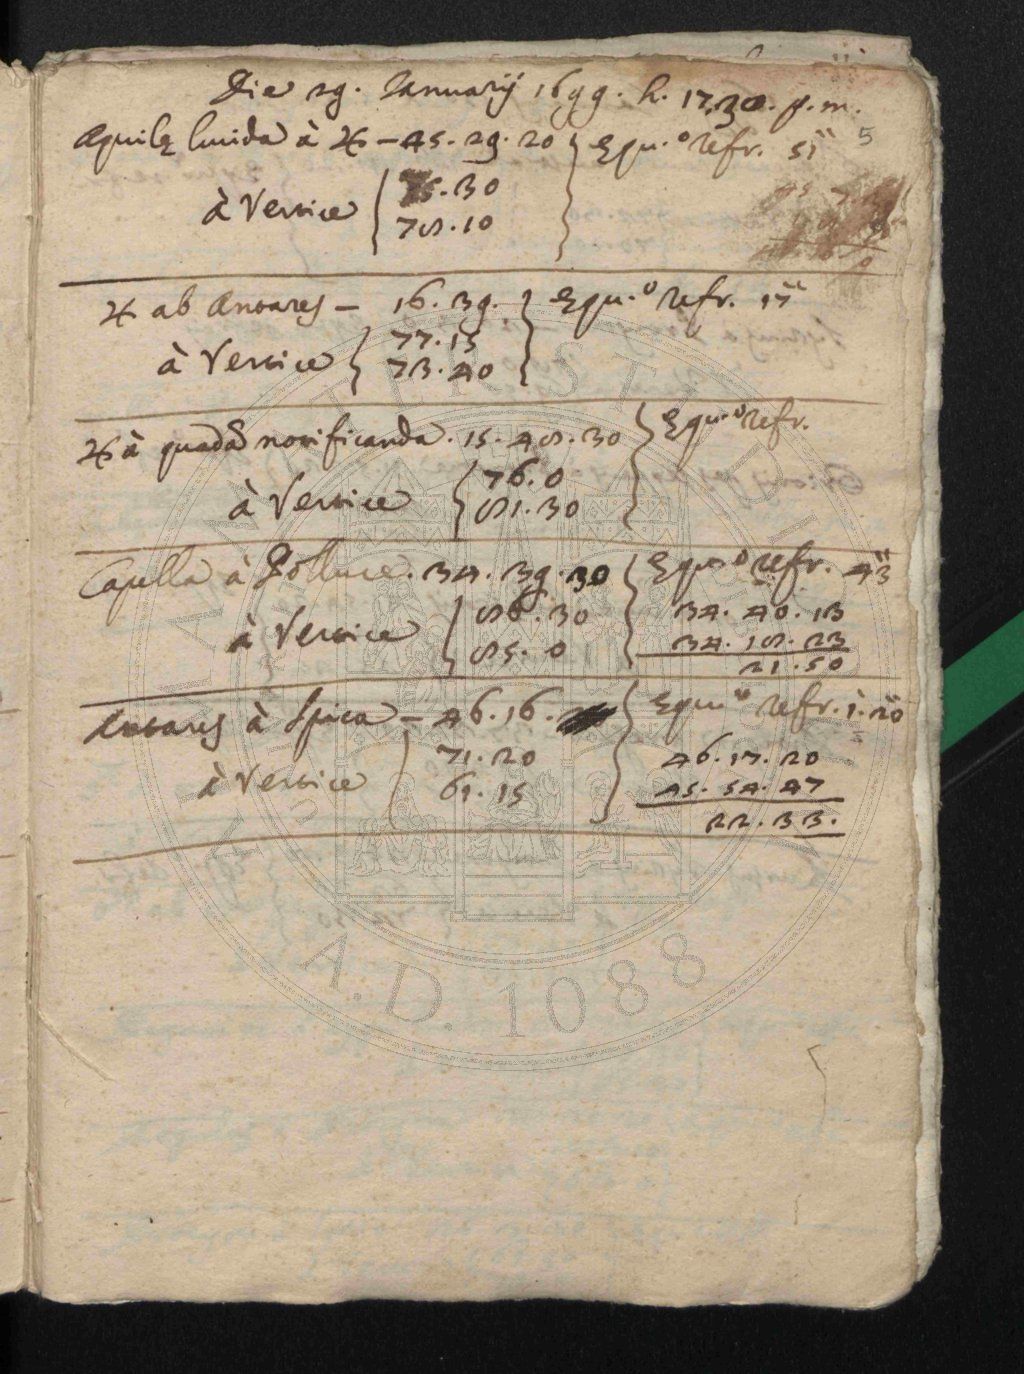 Die 29. Ianuarij 1699. h. 17.30. p.m.
5
Aquilę lucida à ♃ – 45. 29. 20 } Equ.º refr. 51''
à Vertice { 75.30
78.10
♃ ab Antares – 16. 39. } Equ.º refr. 17''
à Vertice { 77.15
73.40
♃ à quadā notificanda. 15. 48. 30 } Equ.º refr.
à Vertice { 76.0
81.30
Capella à Polluce. 34. 39. 30 } Equ.º refr. 43''
à Vertice { 86.30 34. 40. 13
85. 0 34. 18. 23
21. 50
Antares à Spica – 46. 16. } Equ.º refr. 1'. 20''
à Vertice { 71. 20 46. 17. 20
61. 15 45. 54. 47
22. 33.
A.D. 1088